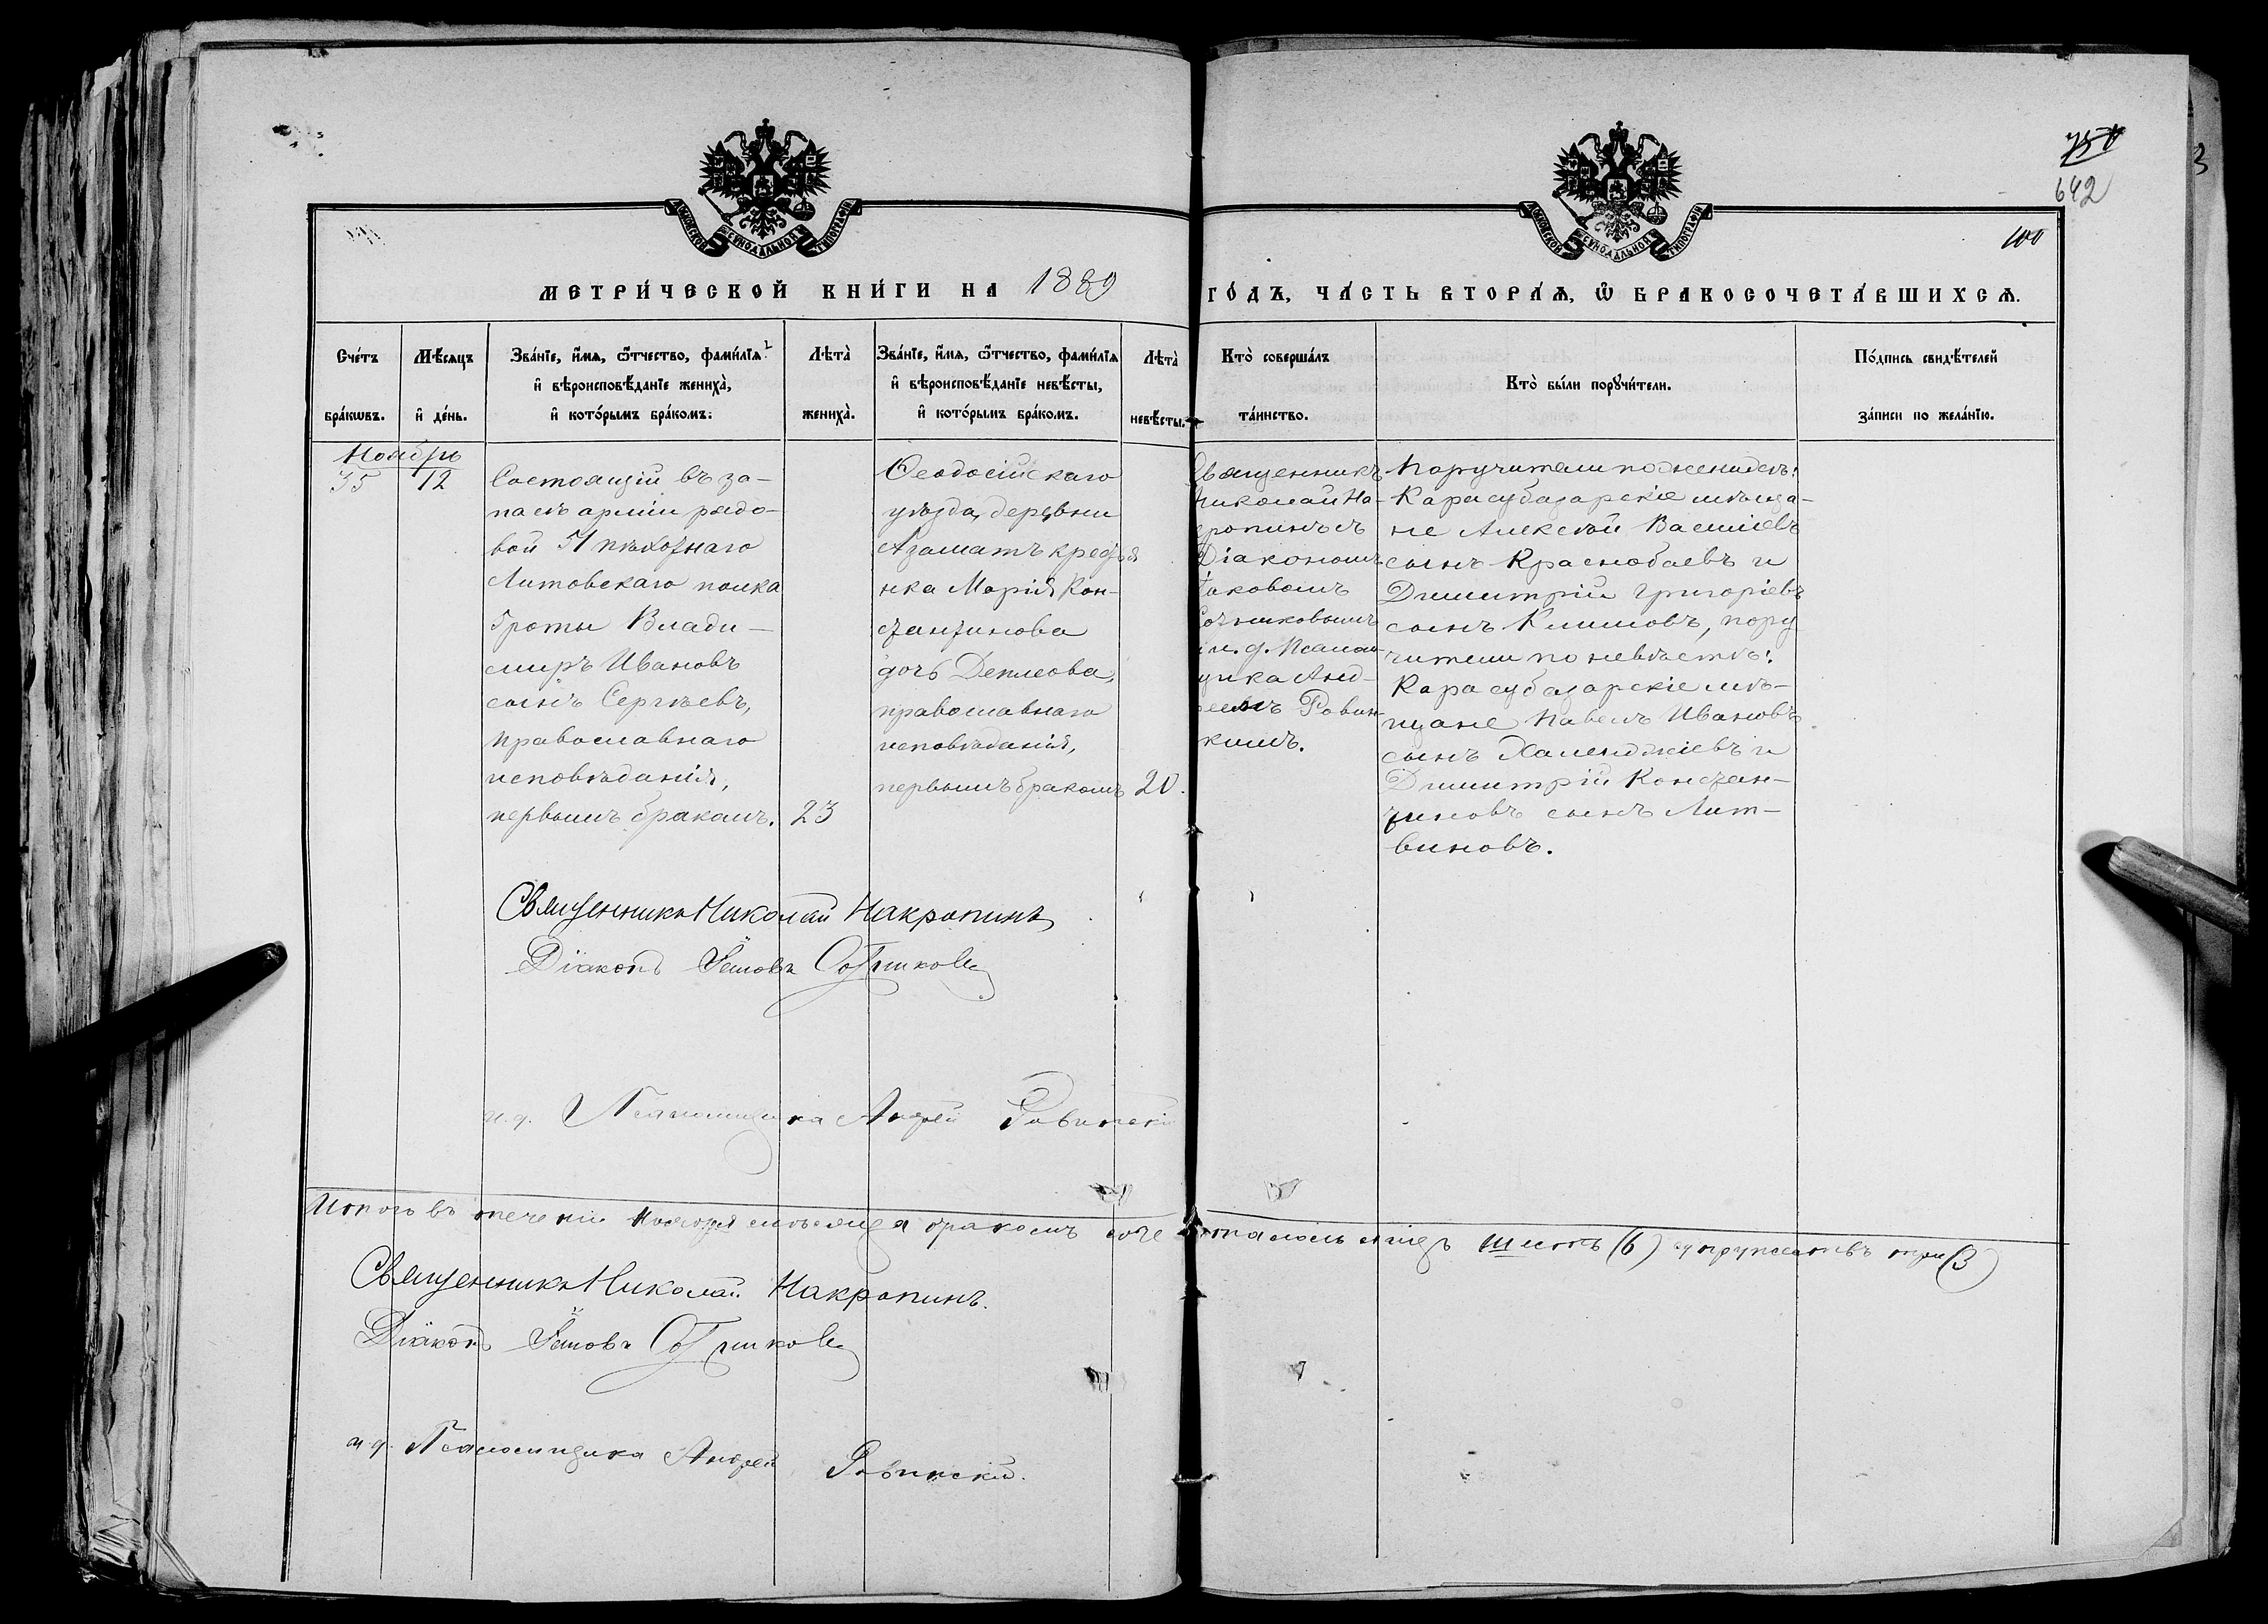 750
642
3
100
МОСКОВСКОЙ СѴНОДАЛЬНОЙ ТИПОГРАФІИ
МОСКОВСКОЙ СѴНОДАЛЬНОЙ ТИПОГРАФІИ
МЕТРИ́ЧЕСКОЙ КНИ́ГИ НА 1889 ГО́ДЪ, ЧА́СТЬ ВТОРА́Ѧ, Ѡ҆ БРАКОСОЧЕТА́ВШИХСѦ.
Сче́тъ
бра́кѡвъ.
Мѣ́сяцъ
и҆ де́нь.
Зва́нїе, и҆́мѧ, ѻ҆́тчество, фами́лїѧ
и҆ вѣроисповѣ́данїе жениха̀,
и҆ кото́рымъ бра́комъ.
Лѣта̀
жениха̀.
Зва́нїе, и҆́мѧ, ѻ҆́тчество, фами́лїѧ
и҆ вѣроисповѣ́данїе невѣ́сты,
и҆ кото́рымъ бра́комъ.
Лѣта̀
невѣ́сты.
Кто̀ соверша́лъ
та́инство.
Кто̀ бы́ли порꙋчи́тели.
По́дпись свидѣ́телей
за́писи по жела́нїю.
Ноябрь
35
12
Состоящій въ за-
пасѣ арміи рядо-
вой 51 пѣхотнаго
Литовскаго полка
5 роты Влади-
миръ Ивановъ
сынъ Сергѣевъ,
православнаго
исповѣданія,
первымъ бракомъ.
23
Ѳеодосійскаго
уѣзда, деревни
Азаматъ крестья
нка Марія Кон-
стантинова
дочь
православнаго
исповѣданія,
первымъ бракомъ
20.
Священникъ
Николай На-
кропинъ съ
Діакономъ
Іаковомъ
Сотниковымъ
и и. д. Псалом-
щика Анд-
реемъ Ровин-
скимъ.
Поручители по женихѣ:
Карасубазарскіе мѣща-
не Алексѣй Василіевъ
сынъ Краснобаевъ и
Димитрій Григоріевъ
сынъ Климовъ, пору
чители по невѣстѣ:
Карасубазарскіе мѣ-
щане Павелъ Ивановъ
сынъ Халенджіевъ и
Димитрій Констан-
тиновъ сынъ Лит-
виновъ.
Священникъ Николай Накропинъ
Діаконъ Іаковъ Сотниковъ
и. д. Псаломщика Андрей Ровинскій
Итого въ теченіи Ноября мѣсяца бракомъ сочеталось лицъ шесть (6) супружествъ три (3)
Священникъ Николай Накропинъ.
Діаконъ Іаковъ Сотниковъ
и. д. Псаломщика Андрей Ровинскій.